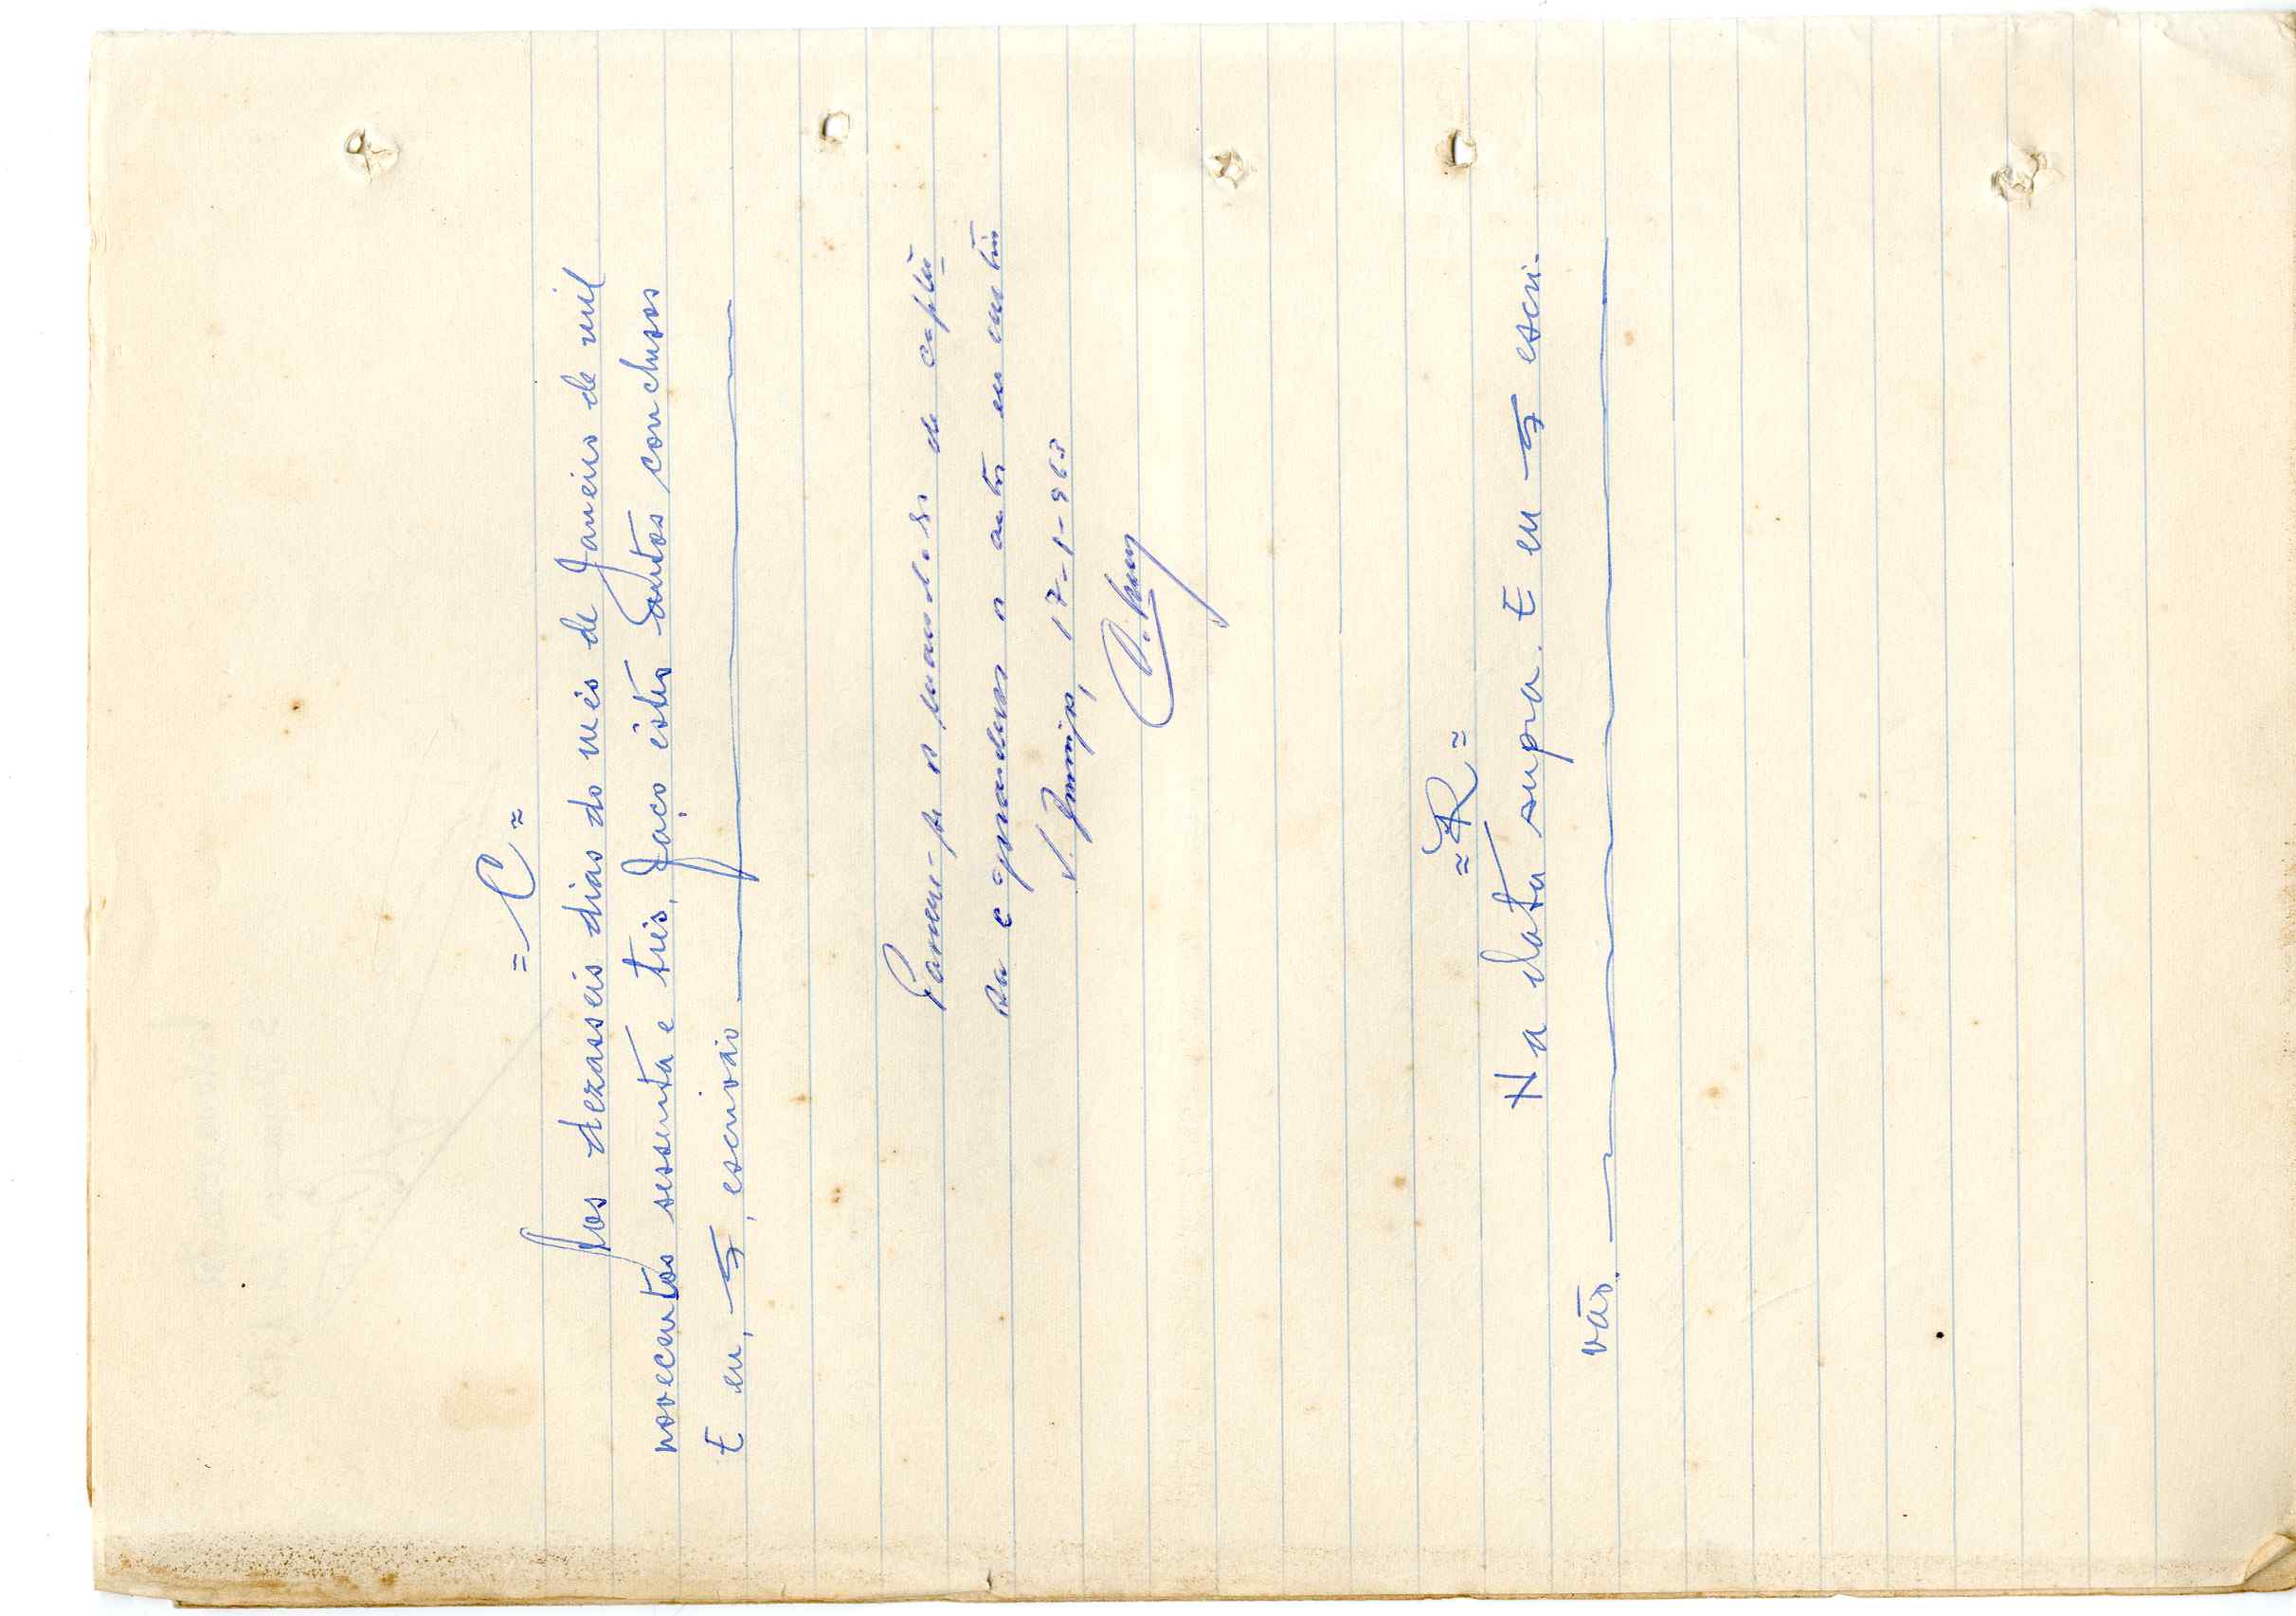 = C =
Aos dezasseis dias do mês de Janeiro de mil
novecentos sessenta e três, faço êstes autos conclusos
E eu, escrivão
Passem-se os mandados de captu
ra e aguardem os autos em cartório
17-1-963
= R =
Na data supra. E eu escri-
vão.